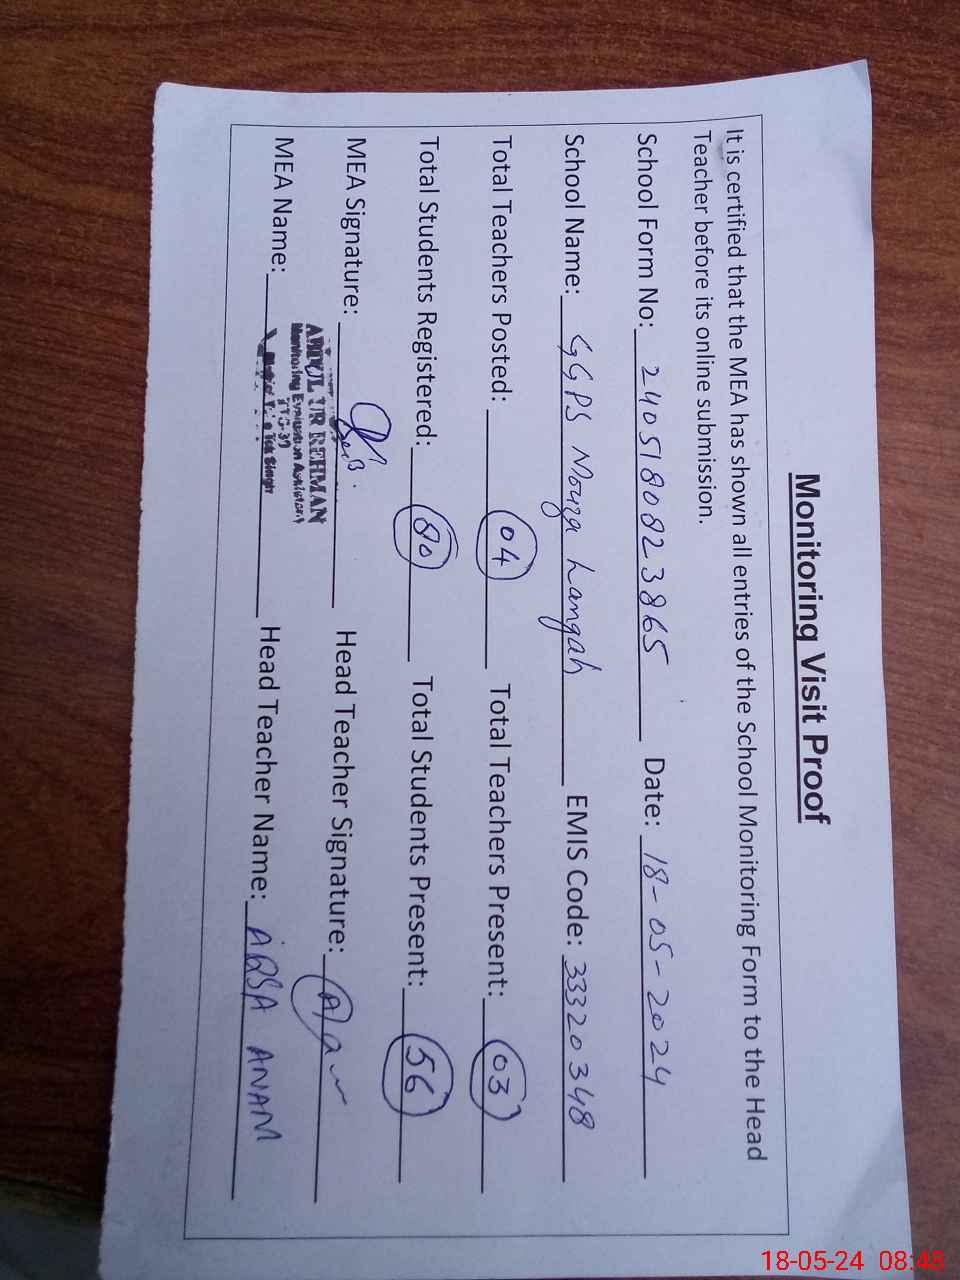 Monitoring Visit Proof
It is certified that the MEA has shown all entries of the School Monitoring Form to the Head
Teacher before its online submission.
School Form No: 2405180823865 Date: 18-05-2024
School Name: GGPS Mouza Langah EMIS Code: 33320348
Total Teachers Posted: 04 Total Teachers Present: 03
Total Students Registered: 80 Total Students Present: 56
MEA Signature: Head Teacher Signature:
ABDUL UR REHMAN
Monitoring Evaluation Assistant
MEA Name: Head Teacher Name: AQSA ANAM
18-05-24 08:48